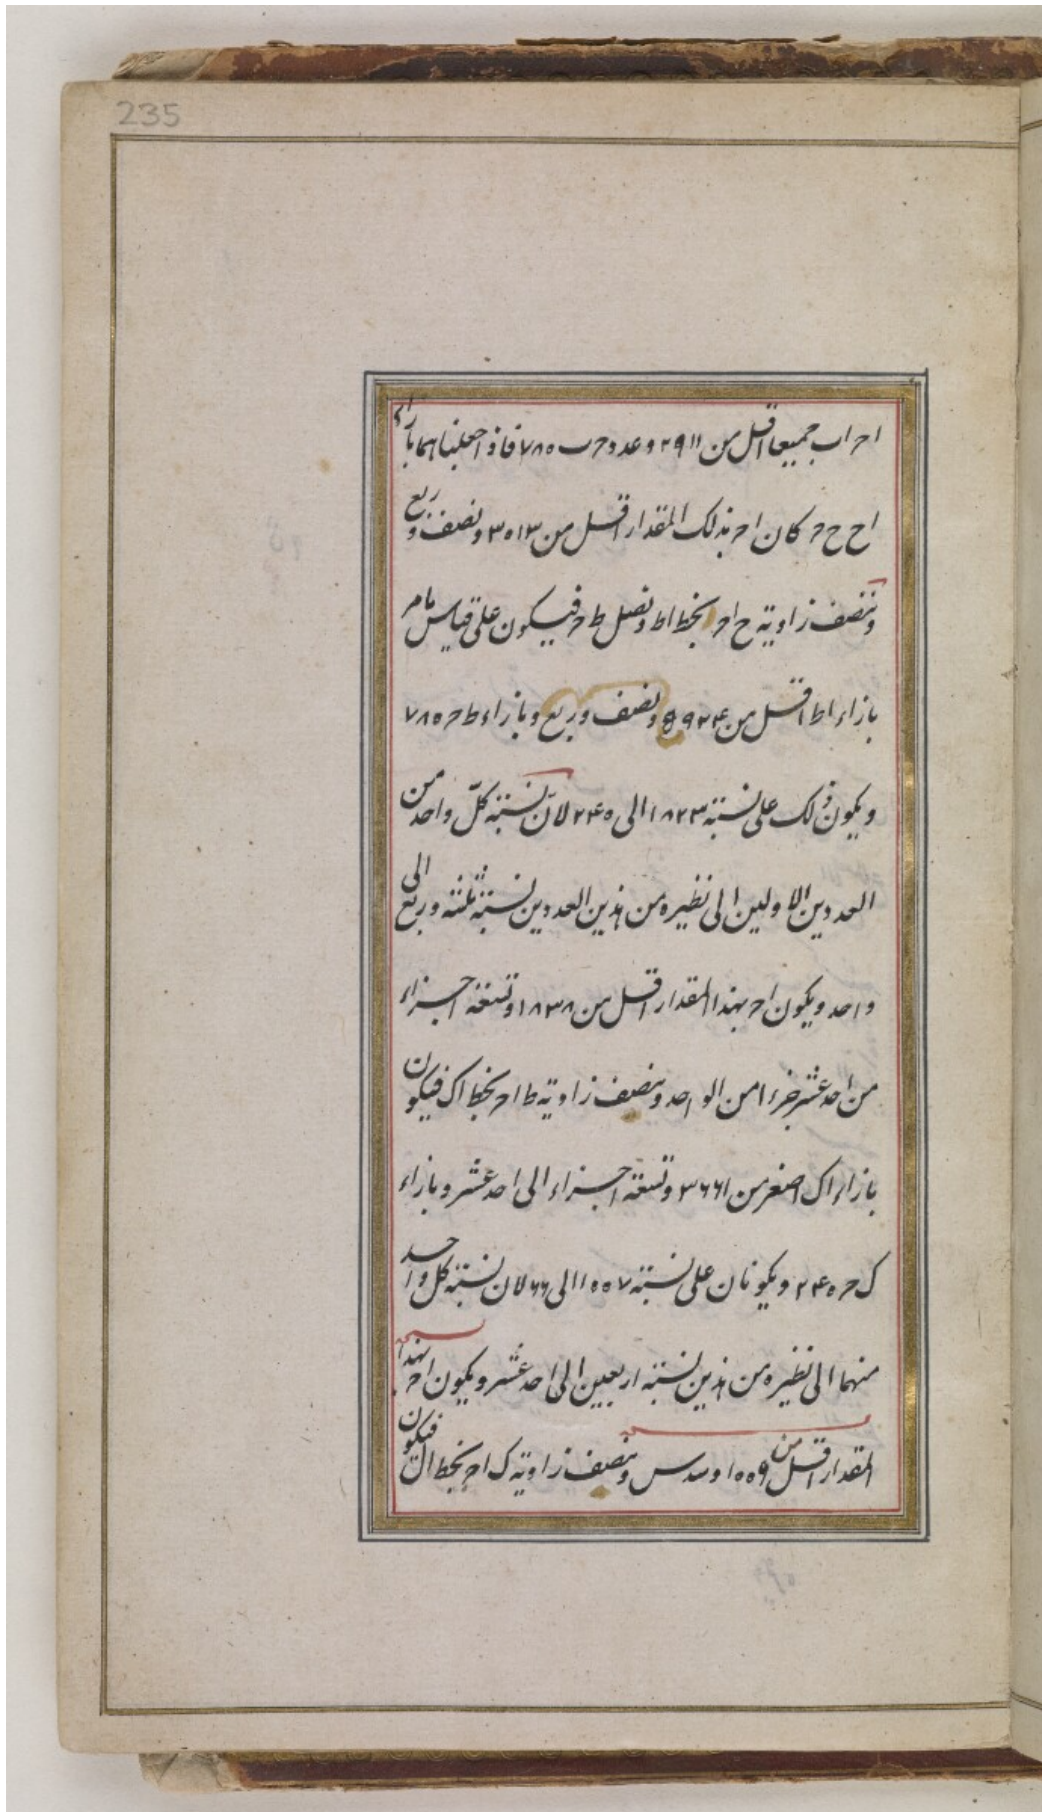 235
احر اب جميعا اقل من ٢٩١١ وعدد حرب ٧٨٥ فاذا جعلناهما بازاء
اح ح حر كان احر بذلك المقدار اقل من ٣٥١٣ ونصف وربع
وننصف زاوية ح احر بخط اط ونصل ط حر فيكون على قياس ما مر
بازاء اط اقل من ۵٩٢۴ ونصف وربع وبازاء ط حر ٧٨٥
ويكون ذلك على نسبة ١٨٢٣ الى ٢۴٥ لانّ نسبة كلّ واحد من
العددين الاولين الى نظيره من هذين العددين نسبة ثلثة وربع الى
واحد ويكون احر بهذا المقدار اقل من ١٨٣٨ وتسعة اجزاء
من احد عشر جزءا من الواحد وننصف زاوية ط احر بخط اك فيكون
بازاء اك اصغر من ٣٦٦١ وتسعة اجزاء الى احد عشر وبازاء
ك حر ٢۴٥ ويكونان على نسبة ١٥٥٧ الى ٦٦ لان نسبة كل واحد
منهما الى نظيره من هذين نسبة اربعين الى احد عشر ويكون احر بهذا
المقدار اقل من ١٥٥٩ وسدس وننصف زاوية ك احر بخط ال فيكون